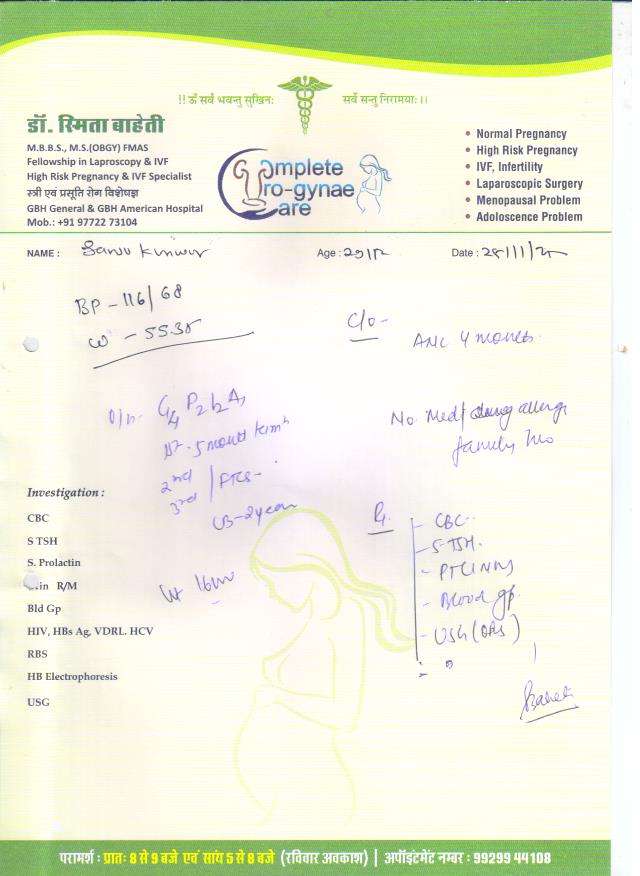 !! ॐ सर्वे भवन्तु सुखिनः सर्वे सन्तु निरामयाः।।
डॉ. स्मिता बाहेती
M.B.B.S., M.S.(OBGY) FMAS
Fellowship in Laproscopy & IVF
High Risk Pregnancy & IVF Specialist
स्त्री एवं प्रसूति रोग विशेषज्ञ
GBH General & GBH American Hospital
Mob.: +91 97722 73104
Complete
Uro-gynae
Care
• Normal Pregnancy
• High Risk Pregnancy
• IVF, Infertility
• Laparoscopic Surgery
• Menopausal Problem
• Adoloscence Problem
NAME : Kunwar Age : Date :
BP - 116/68
W - 55.35
C/o - ANC 4 months.
G4 P2 L2 A1
5 month
2nd
3rd
LB - 2 year
No Med / drug allergy
family H/o
Investigation :
CBC
S TSH
S. Prolactin
R/M
Bld Gp
HIV, HBs Ag, VDRL. HCV
RBS
HB Electrophoresis
USG
- CBC
- S-TSH.
- PTINR
- Blood gp.
- USG (OBS)
परामर्श : प्रातः 8 से 9 बजे एवं सांय 5 से 8 बजे (रविवार अवकाश) | अपॉइंटमेंट नम्बर : 99299 44108